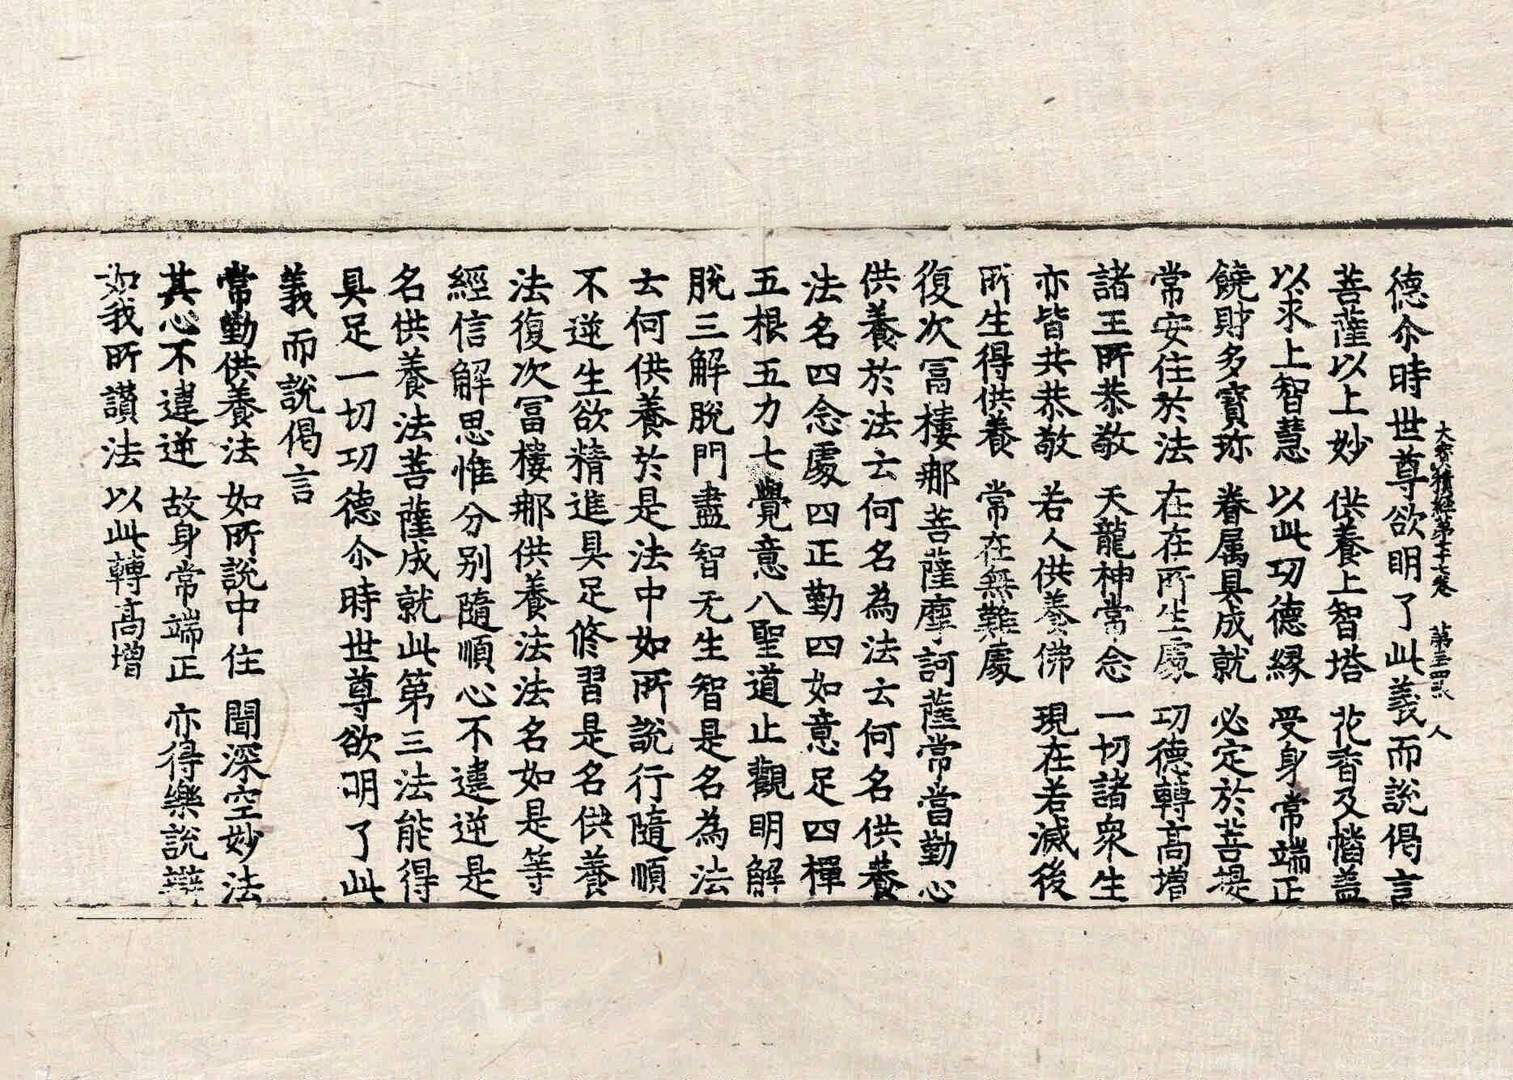 大寶積經苐七十七卷 苐三四張 人
德尒時世尊欲明了此義而說偈言
菩薩以上妙 供養上智塔 花香及幡蓋
以求上智慧 以此功德緣 受身常端正
饒財多寶珎 眷属具成就 必定於菩提
常安住於法 在在所生處 功德轉高增
諸王所恭敬 天龍神常念 一切諸衆生
亦皆共恭敬 若人供養佛 現在若滅後
所生得供養 常在無難處
復次冨樓那菩薩摩訶薩常當勤心
供養於法云何名為法云何名供養
法名四念處四正勤四如意足四禪
五根五力七覺意八聖道止觀明解
脫三解脫門盡智无生智是名為法
云何供養於是法中如所說行隨順
不逆生欲精進具足修習是名供養
法復次冨樓那供養法法名如是等
經信解思惟分別隨順心不違逆是
名供養法菩薩成就此第三法能得
具足一切功德尒時世尊欲明了此
義而說偈言
常勤供養法 如所說中住 聞深空妙法
其心不違逆 故身常端正 亦得樂說辯
如我所讚法 以此轉高增